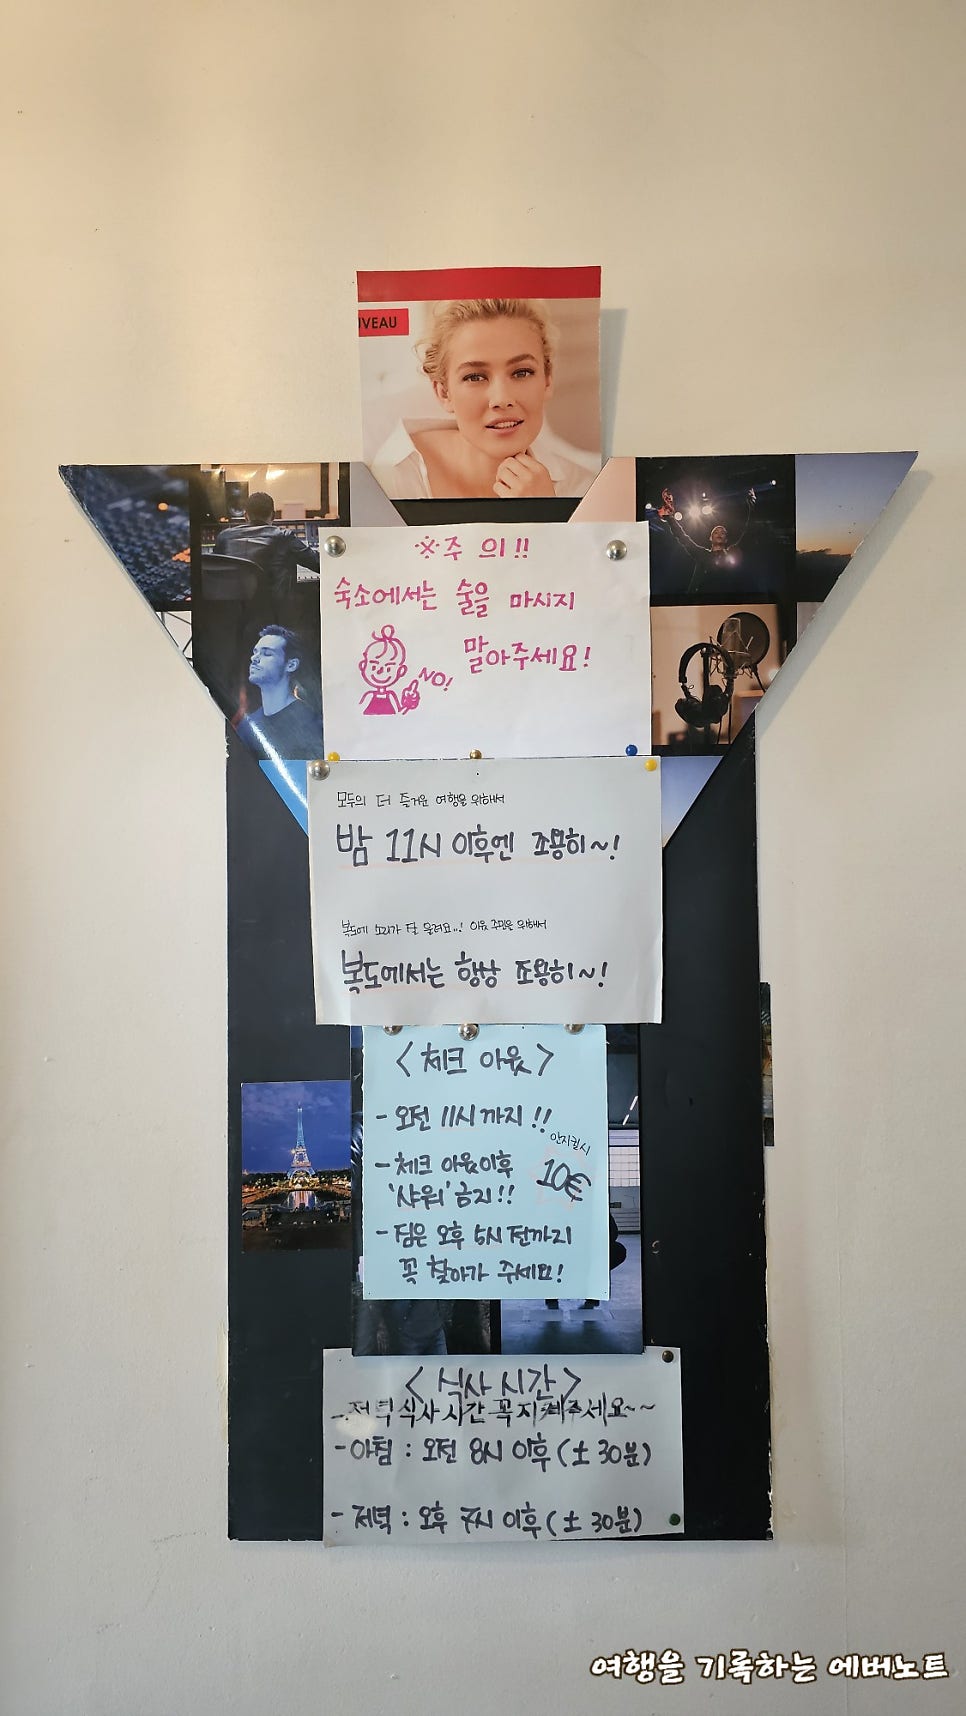 UVEAU
※주 의!!
숙소에서는 술을 마시지
말아주세요!
NO!
모두의 더 즐거운 여행을 위해서
밤 11시 이후엔 조용히~!
복도에 소리가 잘 울려요..! 이웃 주민을 위해서
복도에서는 항상 조용히~!
<체크 아웃>
- 오전 11시까지!!
안지킬시
10€
- 체크 아웃이후
'샤워' 금지!!
- 짐은 오후 5시 전까지
꼭 찾아가 주세요!
<식사 시간>
- 저녁 식사 시간 꼭 지켜주세요~~
- 아침 : 오전 8시 이후 (± 30분)
- 저녁 : 오후 7시 이후 (± 30분)
여행을 기록하는 에버노트